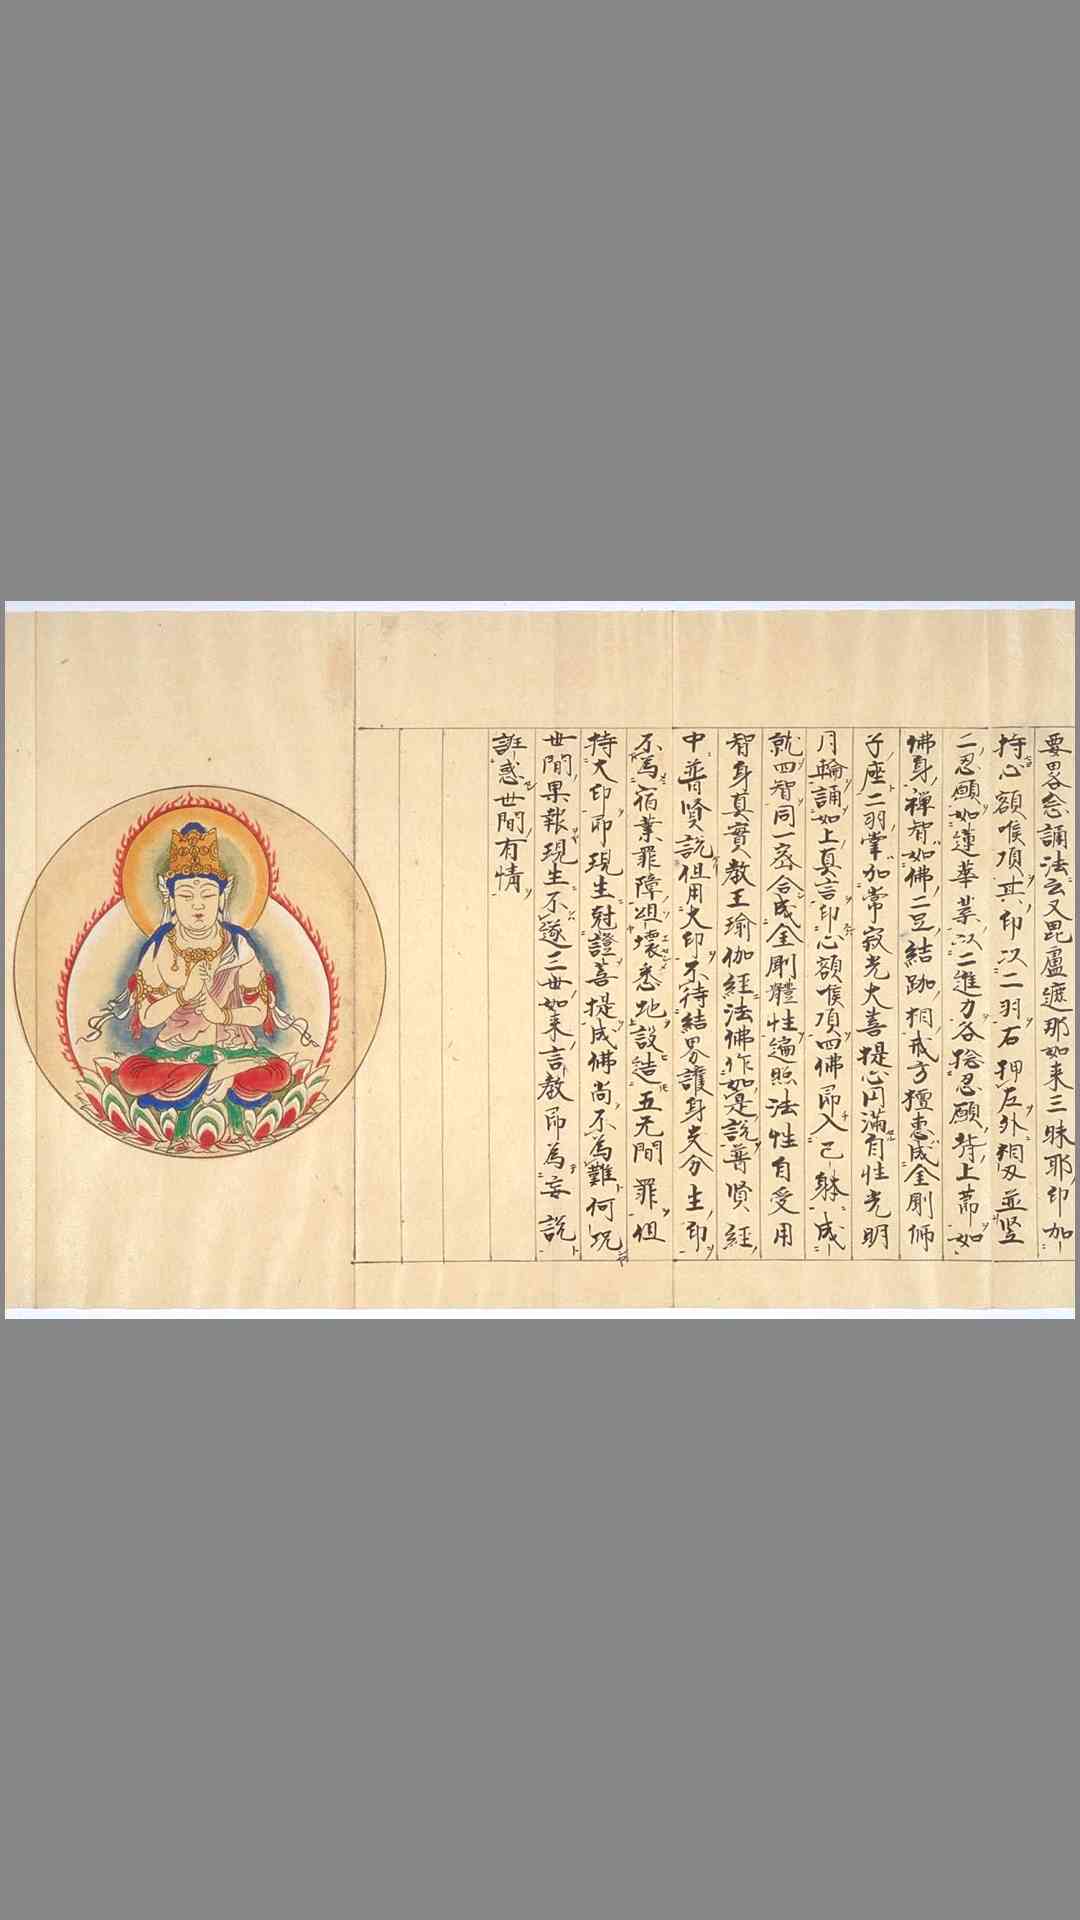 要畧念誦法云又毘盧遮那如来三昧耶印加
持心額喉頂其印以二羽右押左外相叉並竪
二忍願如蓮華葉以二進力各捻忍願背上節如
佛身禅智如佛二足結跏相戒方檀恵成金剛師
子座二羽掌加常寂光大菩提心円満自性光明
月輪誦如上真言印心額喉頂四佛即入己躰成
就四智同一密合成金剛體性遍照法性自受用
智身真實教王瑜伽経法佛作如是說普賢経
中普賢說但用大印不待結界護身支分生印
不為宿業罪障俎壊悉地設造五无間罪但
持大印即現生尅證菩提成佛尚不為難何况
世間果報現生不遂三世如来言教即為妄說
誑惑世間有情